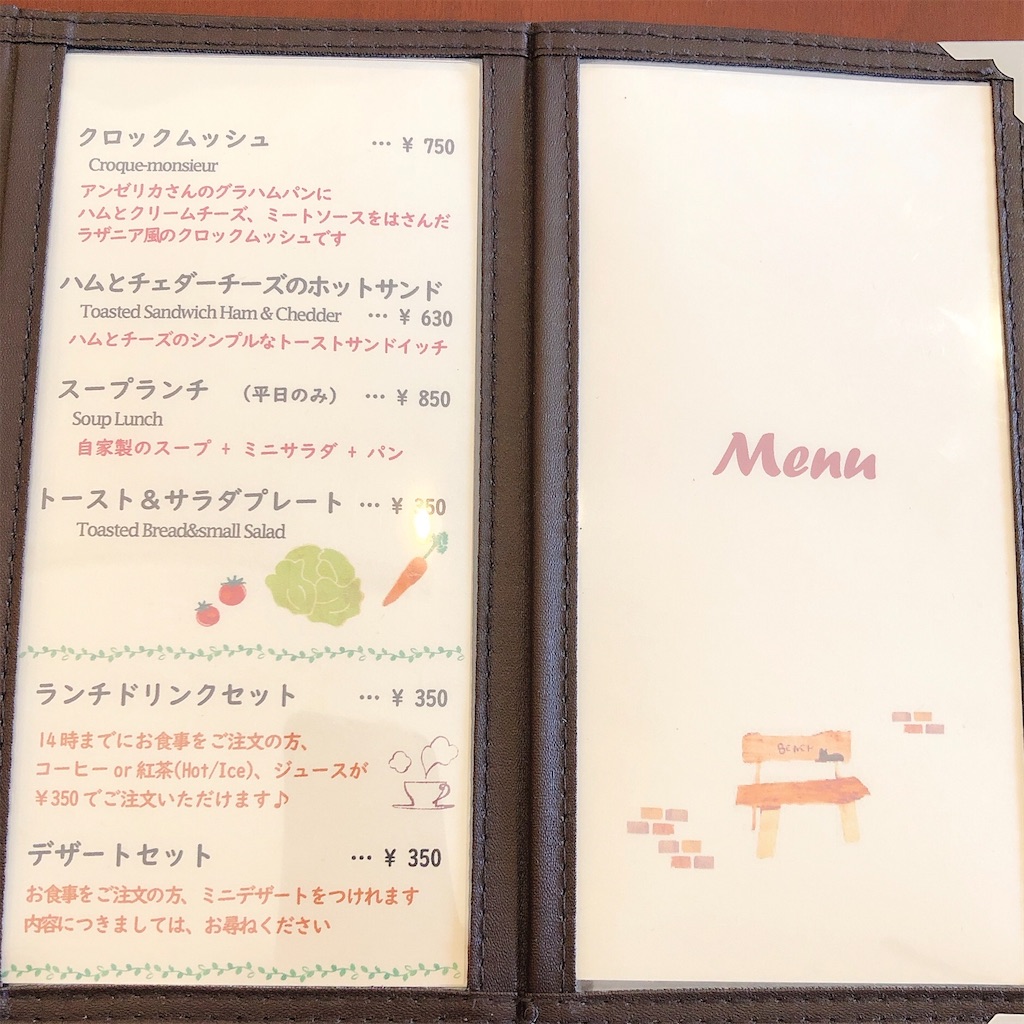 クロックムッシュ … ¥ 750
Croque-monsieur
アンゼリカさんのグラハムパンに
ハムとクリームチーズ、ミートソースをはさんだ
ラザニア風のクロックムッシュです
ハムとチェダーチーズのホットサンド
Toasted Sandwich Ham & Chedder … ¥ 630
ハムとチーズのシンプルなトーストサンドイッチ
スープランチ （平日のみ） … ¥ 850
Soup Lunch
自家製のスープ + ミニサラダ + パン
トースト＆サラダプレート … ¥ 350
Toasted Bread&small Salad
ランチドリンクセット … ¥ 350
14時までにお食事をご注文の方、
コーヒー or 紅茶(Hot/Ice)、ジュースが
¥350 でご注文いただけます♪
デザートセット … ¥ 350
お食事をご注文の方、ミニデザートをつけれます
内容につきましては、お尋ねください
Menu